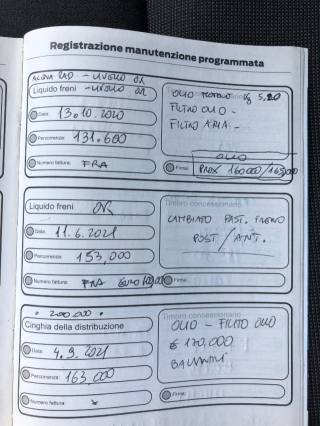 Registrazione manutenzione programmata
ACQUA RAD - LIVELLO OK
Liquido freni - LIVELLO OK
Data: 13.10.2020
Percorrenza: 131.600
Numero fattura: FRA
OLIO MOTORE 5.20
FILTRO OLIO -
FILTRO ARIA -
OLIO
Firma: PROX 160000/163000
Liquido freni OK
Data: 11.6.2021
Percorrenza: 153,000
Numero fattura: FRA EURO
Timbro concessionario
CAMBIATO PAST. FRENO
POST / ANT.
Firma:
. 200000 .
Cinghia della distribuzione
Data: 4.9.2021
Percorrenza: 163.000
Numero fattura:
Timbro concessionario
OLIO - FILTRO OLIO
170,000
Firma: